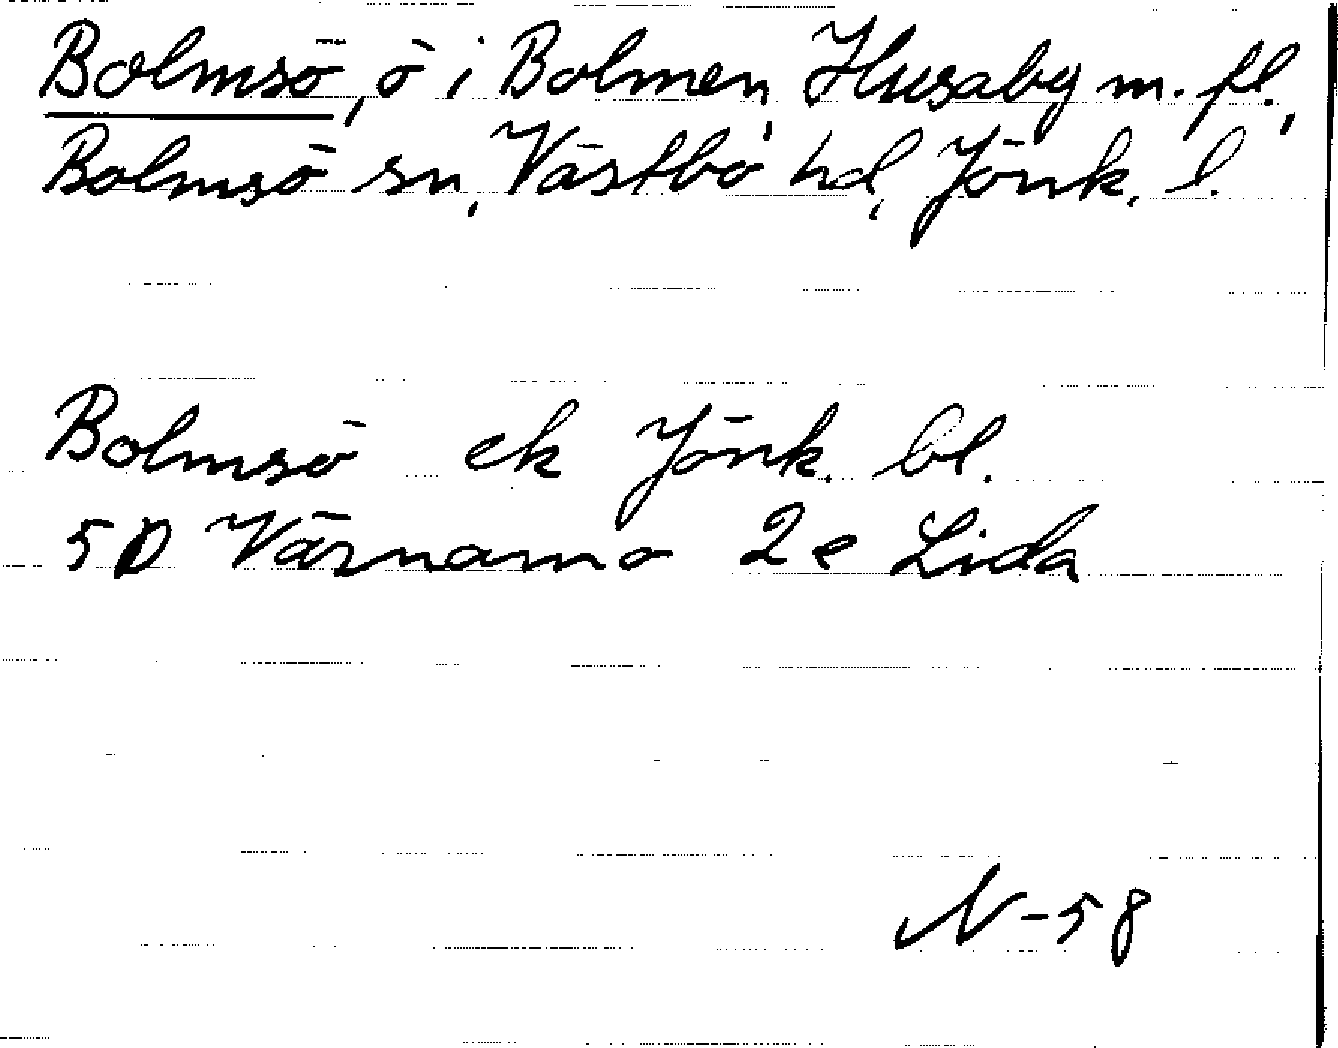 Bolmsö, ö i Bolmen, Husaby m. fl.,
Bolmsö sn, Västbo hd, Jönk. l.
Bolmsö ek Jönk. bl.
5D Värnamo 2e Lida
N-58